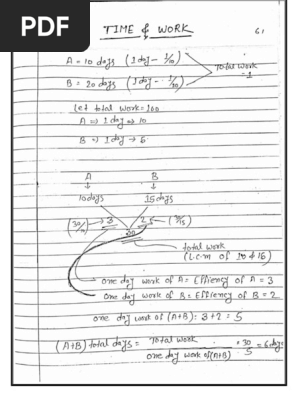 PDF
TIME & WORK
61
A = 10 days (1 day - 1/10)
Total work
- 1
B = 20 days (1 day - 1/20)
Let total work = 100
A => 1 day => 10
B => 1 day => 5
A B
↓ ↓
10 days 15 days
(30/10) 3 2 (30/15)
30
total work
(L.C.M of 10 & 15)
one day work of A = Effiency of A = 3
one day work of B = Effiency of B = 2
one day work of (A+B) = 3+2 = 5
(A+B) total days = Total work / one day work of (A+B) = 30/5 = 6 days